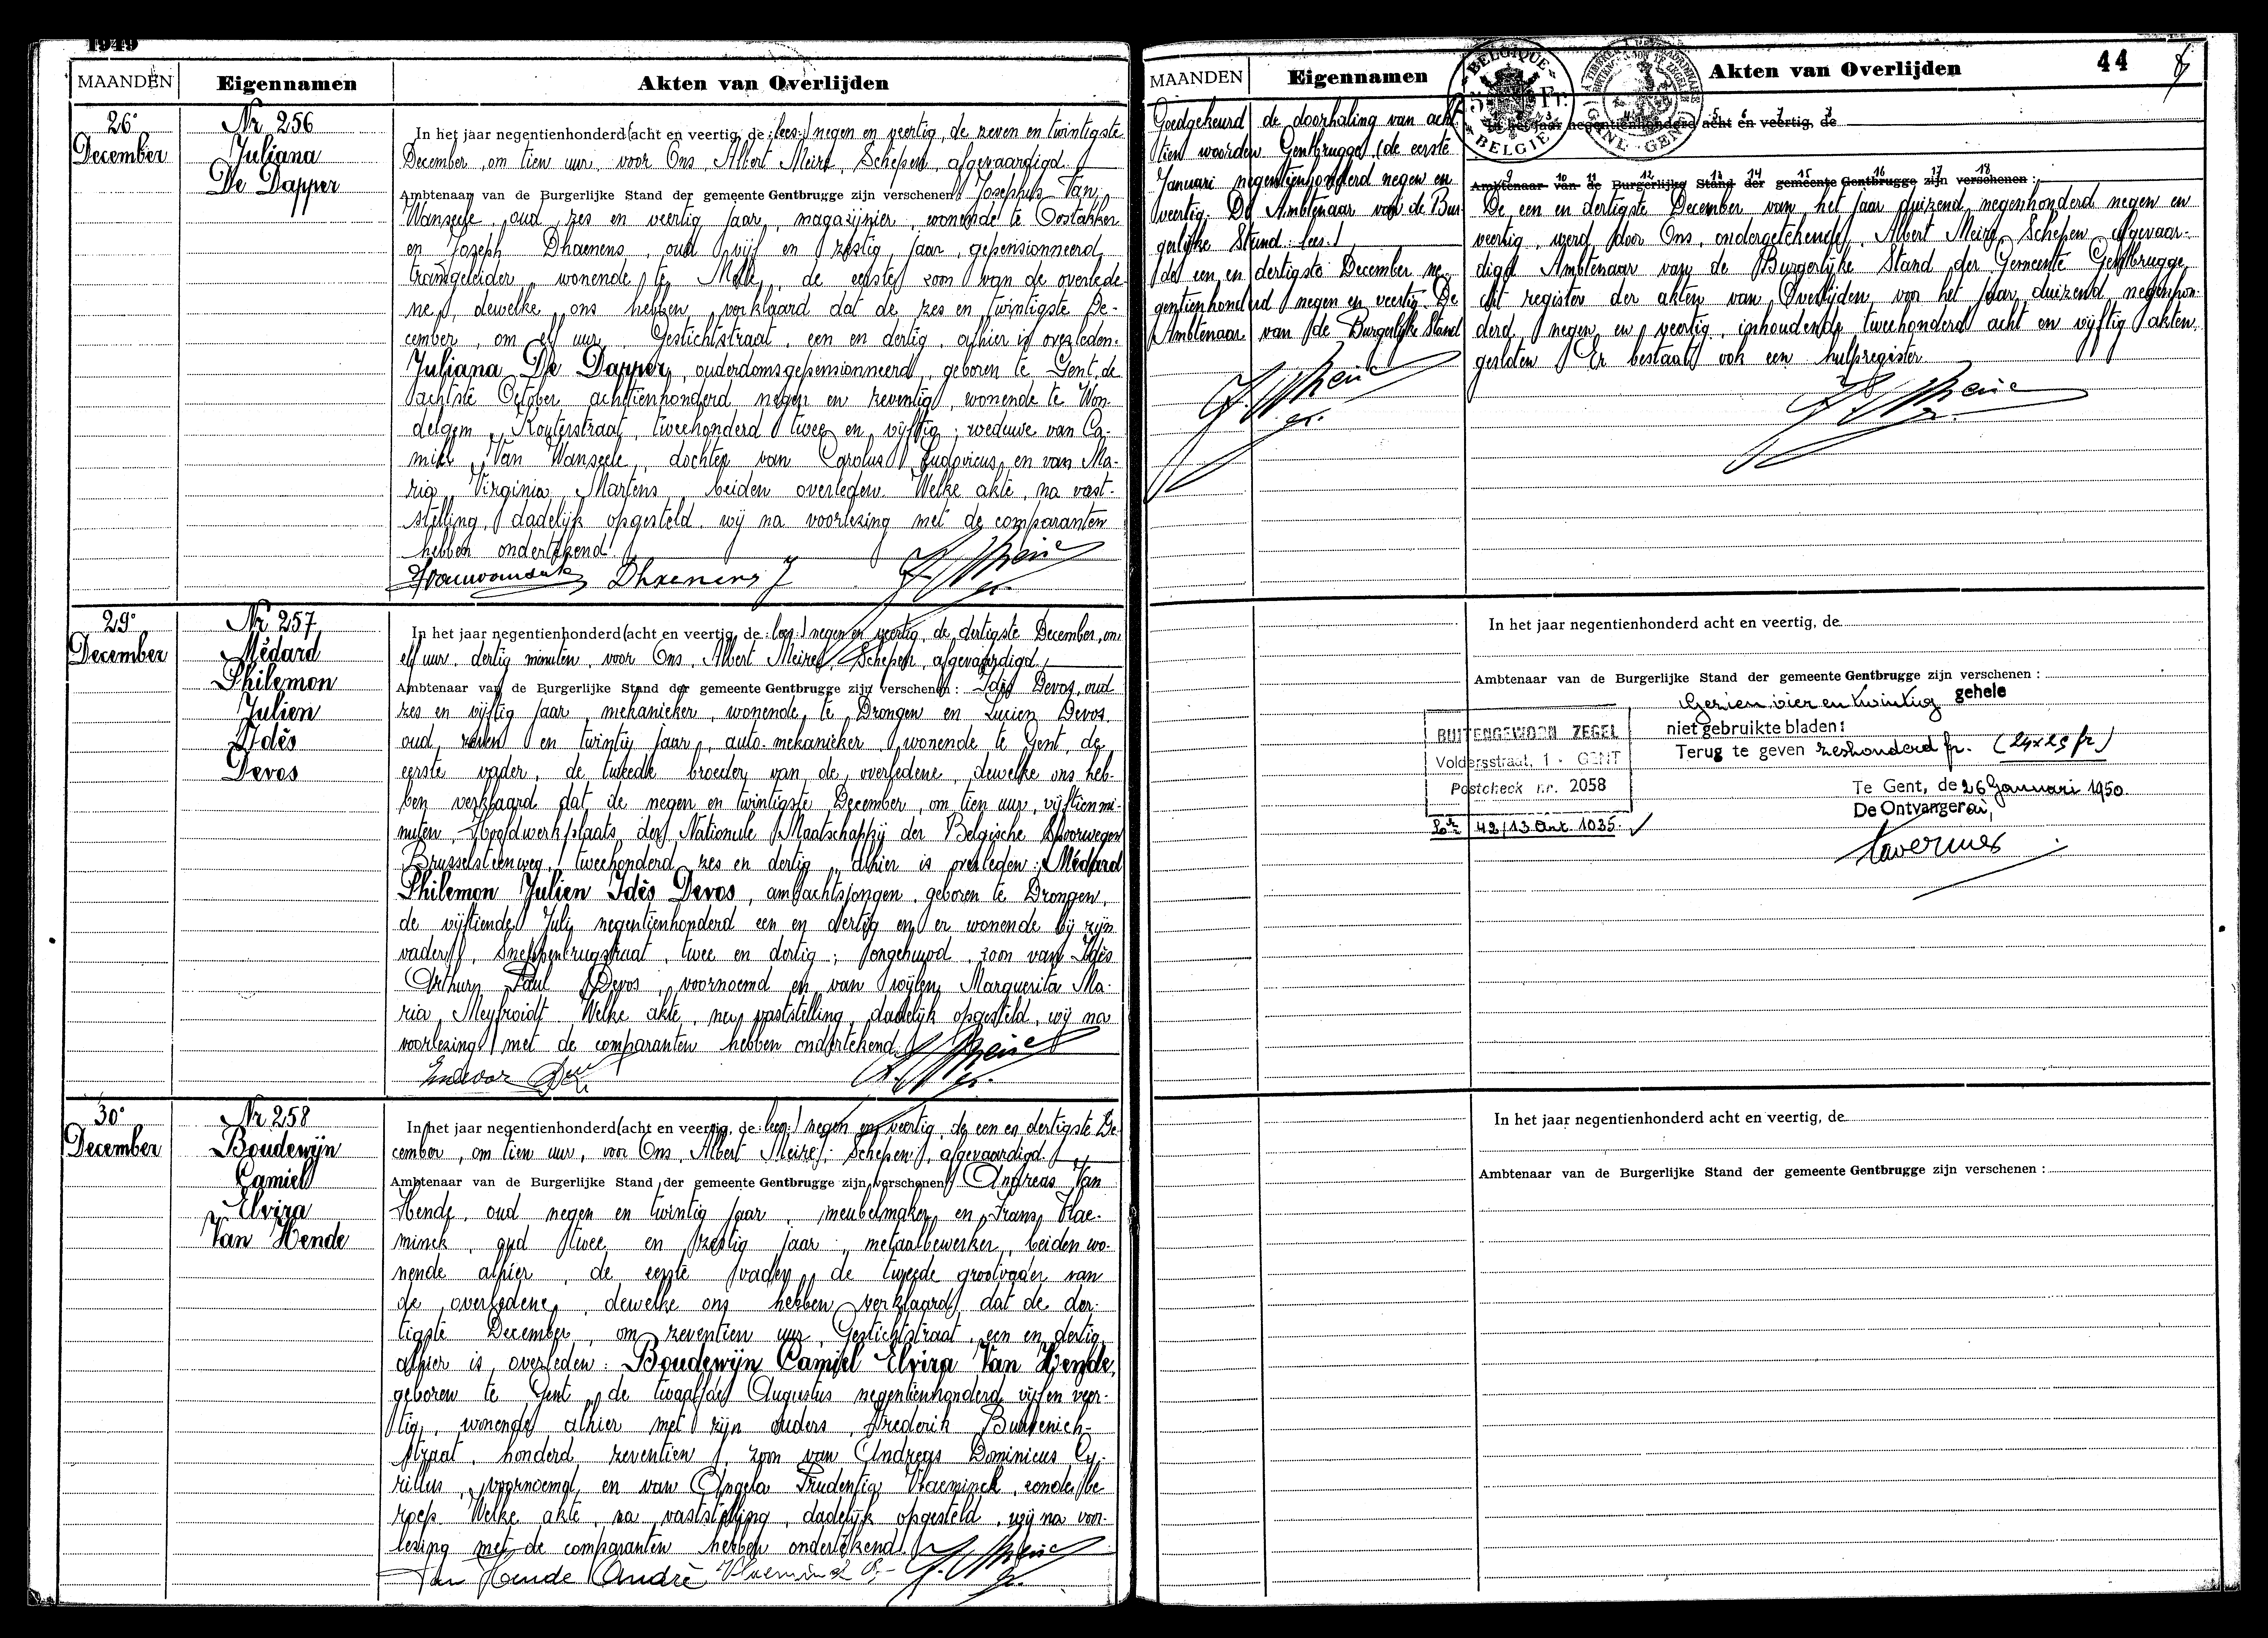 1949
MAANDEN Eigennamen Akten van Overlijden
26e
December
Nr 256
Juliana
De Dapper
In het jaar negentienhonderd (acht en veertig, de : lees:) negen en veertig, de zeven en twintigste
December, om tien uur, voor Ons, Albert Meire, Schepen, afgevaardigd
Ambtenaar van de Burgerlijke Stand der gemeente Gentbrugge zijn verschenen: Josephus Van
Wanseele, oud zes en veertig jaar, magazijnier, wonende te Oostakker
en Joseph Dhaenens, oud vijf en zestig jaar, gepensionneerd
tramgeleider, wonende te Melle, de eerste zoon van de overlede-
ne, dewelke ons hebben verklaard dat de zes en twintigste De-
cember, om elf uur, Gestichtstraat, een en dertig, alhier is overleden:
Juliana De Dapper, ouderdomsgepensionneerd, geboren te Gent, de
achtste October achttienhonderd negen en zeventig, wonende te Won-
delgem, Kouterstraat, tweehonderd twee en vijftig; weduwe van Ca-
miel Van Wanseele, dochter van Carolus Ludovicus, en van Ma-
ria Virginia Martens, beiden overleden. Welke akte, na vast-
stelling, dadelijk opgesteld, wij na voorlezing met de comparanten
hebben ondertekend.
Dhaenens J
29e
December
Nr 257
Médard
Philemon
Julien
Idès
Devos
In het jaar negentienhonderd (acht en veertig, de : lees:) negen en veertig, de dertigste December, om
elf uur, dertig minuten, voor Ons, Albert Meire, Schepen, afgevaardigd
Ambtenaar van de Burgerlijke Stand der gemeente Gentbrugge zijn verschenen: Idès Devos, oud
zes en vijftig jaar, mekanieker, wonende te Drongen en Lucien Devos,
oud zeven en twintig jaar, auto-mekanieker, wonende te Gent, de
eerste vader, de tweede broeder van de overledene, dewelke ons heb-
ben verklaard dat de negen en twintigste December, om tien uur, vijftien mi-
nuten, Hoofdwerkplaats der Nationale Maatschappij der Belgische Spoorwegen
Brusselsteenweg, tweehonderd zes en dertig, alhier is overleden: Médard
Philemon Julien Idès Devos, ambachtsjongen, geboren te Drongen,
de vijftiende Juli negentienhonderd een en dertig en er wonende bij zijn
vader, Sneppenbrugstraat, twee en dertig; ongehuwd, zoon van Idès
Arthur Paul Devos, voornoemd en van wijlen Marguerita Ma-
ria Meyfroidt. Welke akte, na vaststelling, dadelijk opgesteld, wij na
voorlezing met de comparanten hebben ondertekend.
30e
December
Nr 258
Boudewijn
Camiel
Elvira
Van Hende
In het jaar negentienhonderd (acht en veertig, de lees:) negen en veertig, de een en dertigste De-
cember, om tien uur, voor Ons, Albert Meire, Schepen, afgevaardigd
Ambtenaar van de Burgerlijke Stand der gemeente Gentbrugge zijn verschenen: Andreas Van
Hende, oud negen en twintig jaar, meubelmaker en Frans Vlae-
minck, oud twee en zestig jaar, metaalbewerker, beiden wo-
nende alhier, de eerste vader, de tweede grootvader van
de overledene, dewelke ons hebben verklaard dat de der-
tigste December, om zeventien uur, Gestichtstraat, een en dertig
alhier is overleden: Boudewijn Camiel Elvira Van Hende,
geboren te Gent, de twaalfde Augustus negentienhonderd vijf en veer-
tig, wonende alhier met zijn ouders, Frederik Burvenich-
straat, honderd zeventien, zoon van Andreas Dominicus Cy-
rillus, voornoemd en van Angela Prudentia Vlaeminck, zonder be-
roep. Welke akte, na vaststelling, dadelijk opgesteld, wij na voor-
lezing met de comparanten hebben ondertekend.
Van Hende André Vlaeminck
MAANDEN Eigennamen Akten van Overlijden 44
BELGIQUE
5 Fr.
BELGIE
Goedgekeurd de doorhaling van acht-
tien woorden Gentbrugge (de eerste
Januari negentienhonderd negen en
veertig. De Ambtenaar van de Bur-
gerlijke Stand: lees:)
de een en dertigste December ne-
gentienhonderd negen en veertig. De
Ambtenaar van de Burgerlijke Stand
In het jaar negentienhonderd acht en veertig, de
Ambtenaar van de Burgerlijke Stand der gemeente Gentbrugge zijn verschenen :
De een en dertigste December van het jaar duizend negenhonderd negen en
veertig, werd door Ons, ondergetekende, Albert Meire, Schepen, afgevaar-
digd Ambtenaar van de Burgerlijke Stand der Gemeente Gentbrugge,
dit register der akten van Overlijden voor het jaar duizend negenhon-
derd negen en veertig, inhoudende tweehonderd acht en vijftig akten,
gesloten. Er bestaat ook een hulpregister.
In het jaar negentienhonderd acht en veertig, de
Ambtenaar van de Burgerlijke Stand der gemeente Gentbrugge zijn verschenen :
Gezien vier en twintig gehele
niet gebruikte bladen:
Terug te geven zeshonderd fr. (24x25 fr)
BUITENGEWOON ZEGEL
Voldersstraat, 1 - GENT
Postcheck nr. 2058
42/13 Art. 1035
Te Gent, de 26 Januari 1950.
De Ontvanger ai,
In het jaar negentienhonderd acht en veertig, de
Ambtenaar van de Burgerlijke Stand der gemeente Gentbrugge zijn verschenen :